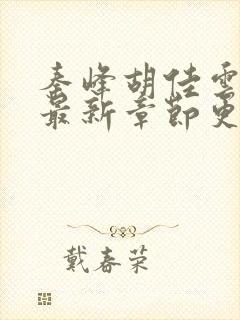 秦峰胡佳雲
最新章節更
戴春荣